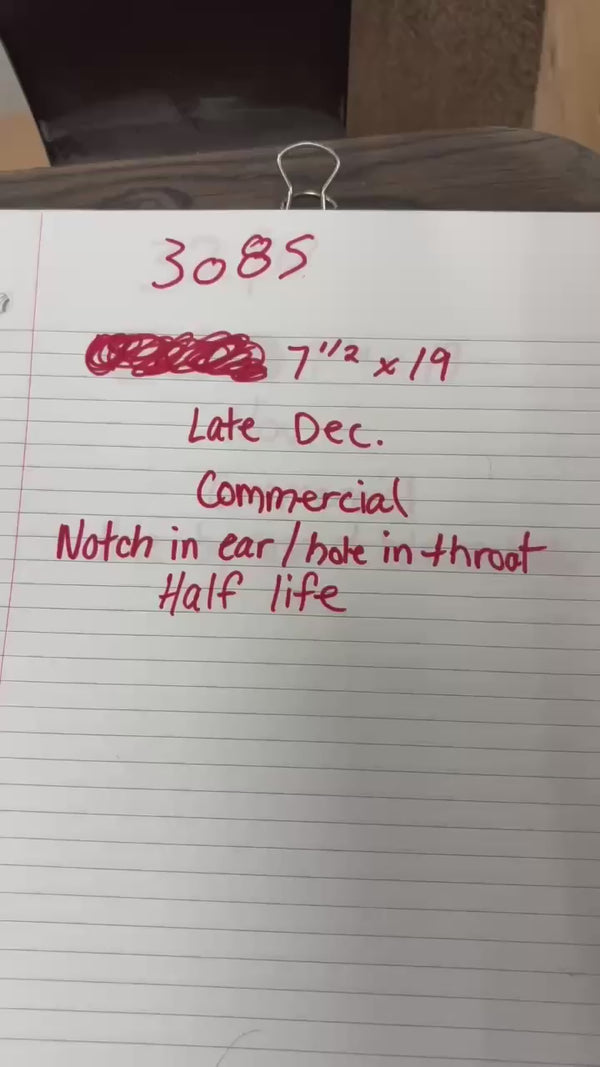 3085
7 1/2 x 19
Late Dec.
Commercial
Notch in ear / hole in throat
Half life